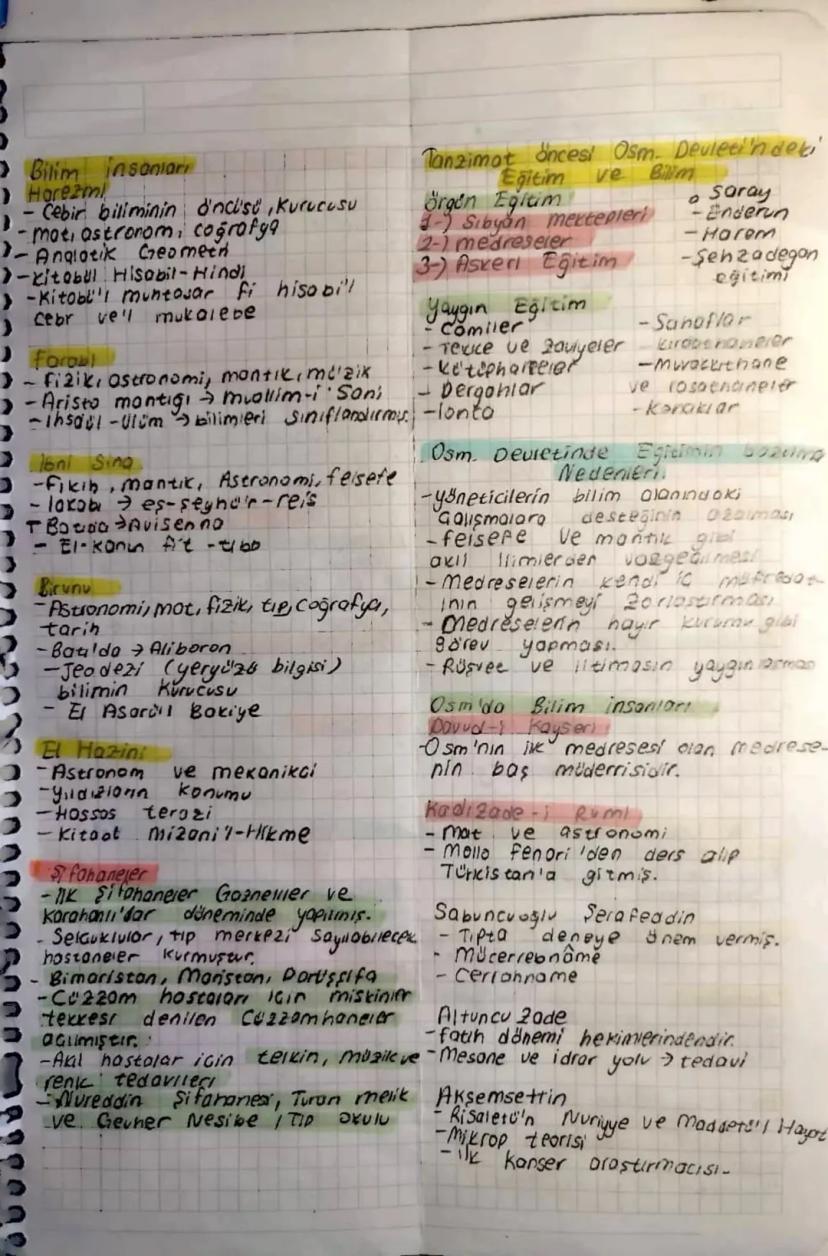 Bilim insanları
Harezmi
- Cebir biliminin öncüsü, kurucusu
- mat, astronomi, coğrafya
- Analatik Geometri
- Kitabül Hisabil-Hindi
- Kitabü'l muhtasar fi hisabi'l
cebr ve'l mukalebe
Farabi
- fizik, astronomi, mantık, müzik
- Aristo mantığı → muallim-i Sani
- Ihsaül-ülüm → bilimleri sınıflandırmış.
İbni Sina
- Fıkıh, mantık, Astronomi, felsefe
- lakabı → eş-şeyhür-reis
- Batıda → Avisenna
- El-kanun fi't-tıbb
Biruni
- Astronomi, mat, fizik, tıp, coğrafya,
tarih
- Batı'da → Aliboron
- Jeodezi (yeryüzü bilgisi)
bilimin kurucusu
- El Asarü'l Bakiye
El Hazini
- Astronom ve mekanikci
- yıldızların konumu
- Hassas terazi
- Kitaat Mizani'l-Hikme
Şifahaneler
- ilk şifahaneler Gazneliler ve
Karahanlı'lar döneminde yapılmış.
- Selçuklular, tıp merkezi sayılabilecek
hastaneler kurmuştur.
- Bimaristan, Maristan, Darüşşifa
- Cüzzam hastaları için miskinler
tekkesi denilen Cüzzamhaneler
açılmıştır.
- Akıl hastalar icin telkin, müzik ve
renk tedavileri
- Nureddin Şifahanesi, Turan melik
ve Gevher Nesibe / Tıp okulu
Tanzimat öncesi Osm. Devleti'ndeki
Eğitim ve Bilim
Örgün Eğitim
1-) Sıbyan mektepleri
2-) medreseler
3-) Askeri Eğitim
Saray
- Enderun
- Harem
- Şehzadegan
eğitimi
Yaygın Eğitim
- Camiler
- Tekke ve zaviyeler
- kütüphaneler
- Dergahlar
- lonta
- Sahaflar
kıraathaneler
- Muvakkithane
ve rasathaneler
- Konaklar
Osm. Devletinde Eğitimin bozulma
Nedenleri
- yöneticilerin bilim alanındaki
Çalışmalara desteğinin azalması
- felsefe ve mantık gibi
akli ilimlerden vazgeçilmesi
- Medreselerin kendi iç müfredat-
ının gelişmeyi zorlaştırması
- Medreselerin hayır kurumu gibi
görev yapması.
- Rüşvet ve iltimasın yaygınlaşması
Osm'da Bilim insanları
Davud-i Kayseri
- Osm'nın ilk medresesi olan medrese-
nin baş müderrisidir.
Kadızade-i Rumi
- mat ve astronomi
- Molla Fenari'den ders alıp
Türkistan'a gitmiş.
Sabuncuoğlu Şerafeddin
- Tıpta deneye önem vermiş.
- Mücerrebnâme
- Cerrahname
Altuncu Zade
- fatih dönemi hekimlerindendir.
- Mesane ve idrar yolu → tedavi
Akşemsettin
- Risaletü'n Nuriyye ve Maddetü'l Hayat
- Mikrop teorisi
- ilk kanser araştırmacısı.